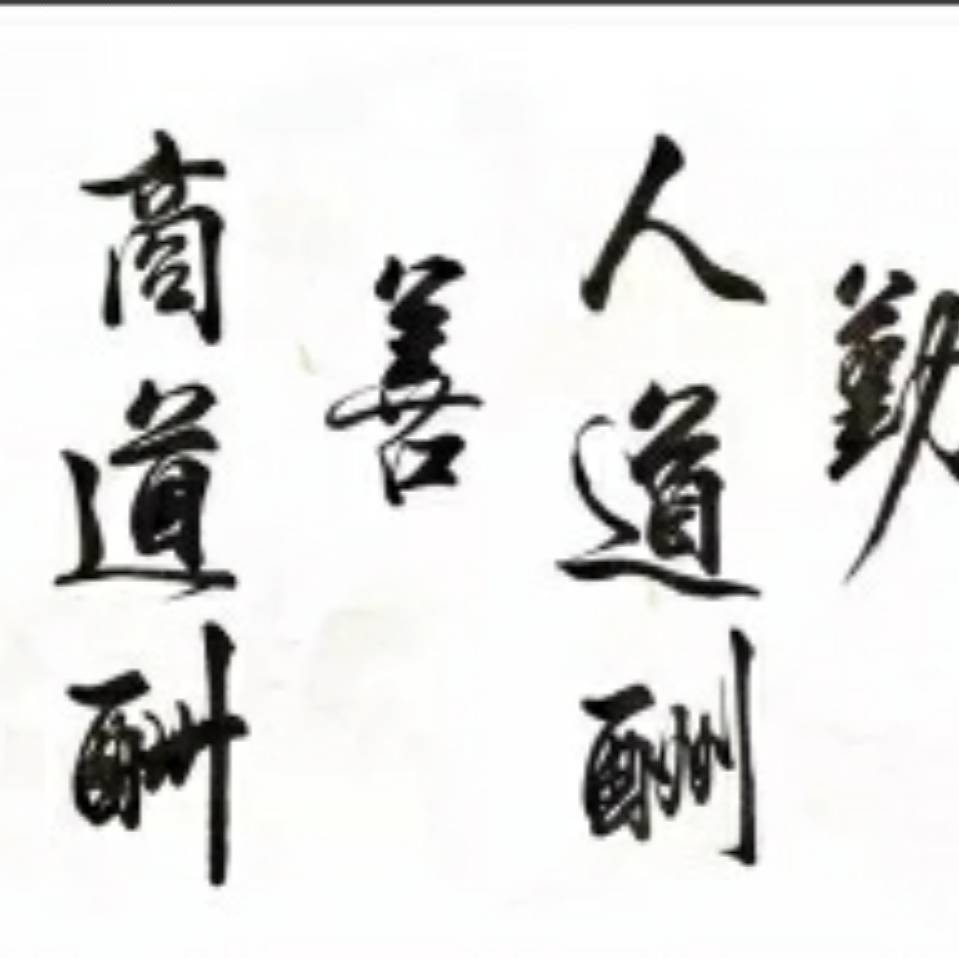 勤
人道酬
善
商道酬